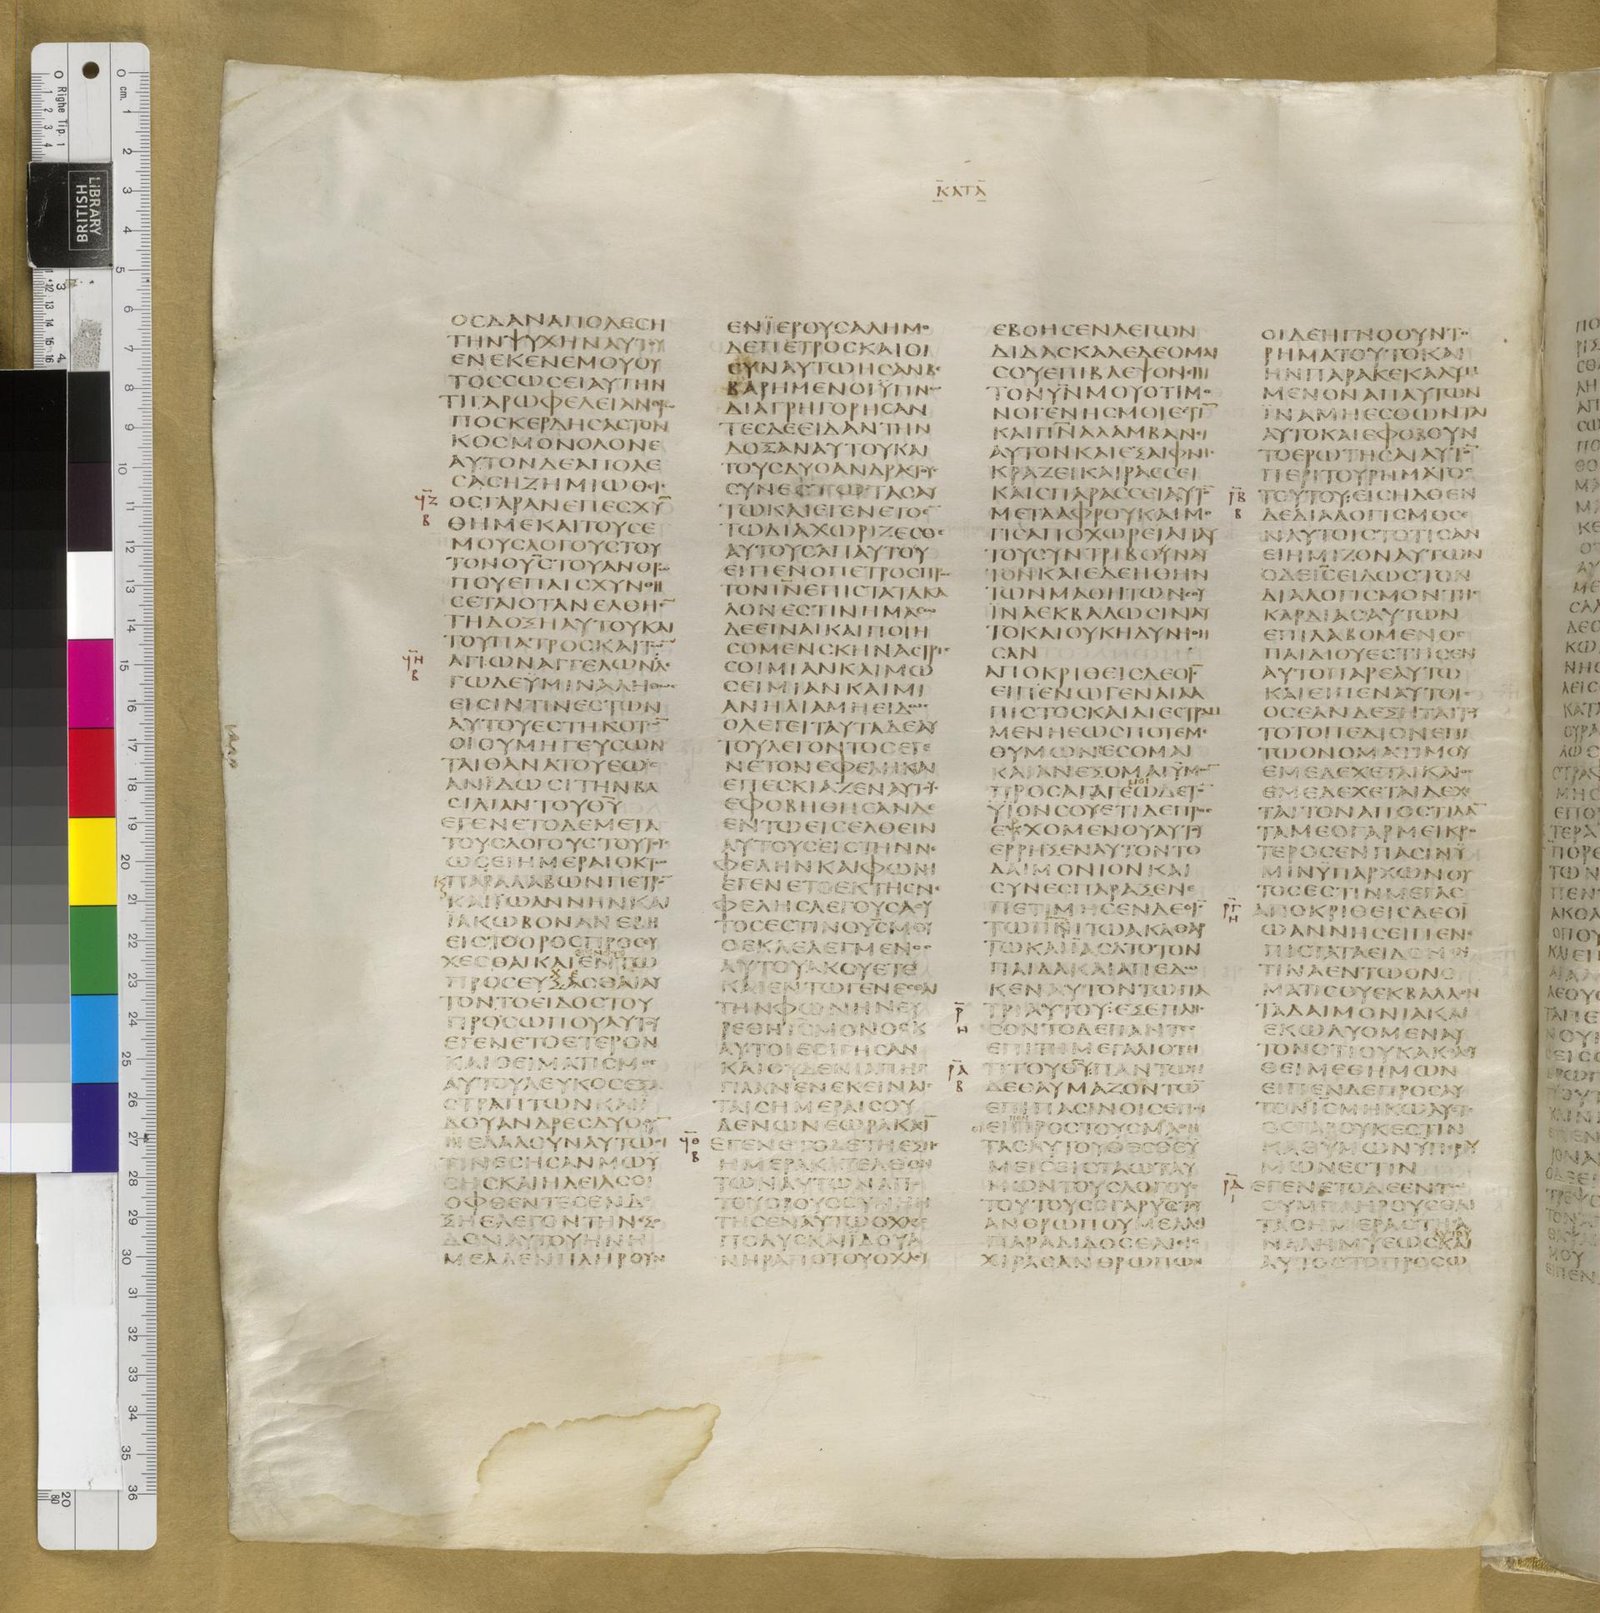 ΚΑΤΑ
ΟϹΔΑΝΑΠΟΛΕϹΗ
ΤΗΝΨΥΧΗΝΑΥΤΟΥ
ΕΝΕΚΕΝΕΜΟΥΟΥ
ΤΟϹϹΩϹΕΙΑΥΤΗΝ
ΤΙΓΑΡΩΦΕΛΕΙΑΝΘΡΩ
ΠΟϹΚΕΡΔΗϹΑϹΤΟΝ
ΚΟϹΜΟΝΟΛΟΝΕ
ΑΥΤΟΝΔΕΑΠΟΛΕ
ϹΑϹΗΖΗΜΙΩΘΙϹ
ϟΖ Β
ΟϹΓΑΡΑΝΕΠΕϹΧΥ̅
ΘΗΜΕΚΑΙΤΟΥϹΕ
ΜΟΥϹΛΟΓΟΥϹΤΟΥ
ΤΟΝΟΥϹΤΟΥΑΝΘΡΩ
ΠΟΥΕΠΑΙϹΧΥΝΘΗ
ϹΕΤΑΙΟΤΑΝΕΛΘΗΕ̅
ΤΗΔΟΞΗΑΥΤΟΥΚΑΙ
ΤΟΥΠΑΤΡΟϹΚΑΙΤΩ̅
ϟΗ Β
ΑΓΙΩΝΑΓΓΕΛΩΝΛΕ
ΓΩΔΕΥΜΙΝΑΛΗΘΩϹ
ΕΙϹΙΝΤΙΝΕϹΤΩΝ
ΑΥΤΟΥΕϹΤΗΚΟΤΩ̅
ΟΙΟΥΜΗΓΕΥϹΩΝ
ΤΑΙΘΑΝΑΤΟΥΕΩϹ
ΑΝΪΔΩϹΙΤΗΝΒΑ
ϹΙΛΙΑΝΤΟΥΘ̅Υ̅
ΕΓΕΝΕΤΟΔΕΜΕΤΑ
ΤΟΥϹΛΟΓΟΥϹΤΟΥΤΟΥϹ
ΩϹΕΙΗΜΕΡΑΙΟΚΤΩ
ΠΑΡΑΛΑΒΩΝΠΕΤΡΟ̅
ΚΑΙΪΩΑΝΝΗΝΚΑΙ
ΪΑΚΩΒΟΝΑΝΕΒΗ
ΕΙϹΤΟΟΡΟϹΠΡΟϹΕΥ
ΧΕϹΘΑΙΚΑΙΕΝΤΩ
ΠΡΟϹΕΥΞΑϹΘΑΙΑΥ
ΤΟΝΤΟΕΙΔΟϹΤΟΥ
ΠΡΟϹΩΠΟΥΑΥΤΟΥ
ΕΓΕΝΕΤΟΕΤΕΡΟΝ
ΚΑΙΟΕΙΜΑΤΙϹΜΟϹ
ΑΥΤΟΥΛΕΥΚΟϹΕΞΑ
ϹΤΡΑΠΤΩΝΚΑΙΪ
ΔΟΥΑΝΔΡΕϹΔΥΟϹΥ
ΝΕΛΑΛΟΥΝΑΥΤΩΟΙ
ΤΙΝΕϹΗϹΑΝΜΩΥ
ϹΗϹΚΑΙΗΛΕΙΑϹΟΙ
ΟΦΘΕΝΤΕϹΕΝΔΟ
ΞΗΕΛΕΓΟΝΤΗΝΕΞΟ
ΔΟΝΑΥΤΟΥΗΝΗ
ΜΕΛΛΕΝΠΛΗΡΟΥΝ
ΕΝΪΕΡΟΥϹΑΛΗΜΟ
ΔΕΠΕΤΡΟϹΚΑΙΟΙ
ϹΥΝΑΥΤΩΗϹΑΝΒΕ
ΒΑΡΗΜΕΝΟΙΫΠΝΩ
ΔΙΑΓΡΗΓΟΡΗϹΑΝ
ΤΕϹΔΕΕΙΔΑΝΤΗΝ
ΔΟΞΑΝΑΥΤΟΥΚΑΙ
ΤΟΥϹΔΥΟΑΝΔΡΑϹΤΟΥϹ
ϹΥΝΕϹΤΩΤΑϹΑΥ
ΤΩΚΑΙΕΓΕΝΕΤΟΕ̅
ΤΩΔΙΑΧΩΡΙΖΕϹΘΑΙ
ΑΥΤΟΥϹΑΠΑΥΤΟΥ
ΕΙΠΕΝΟΠΕΤΡΟϹΠΡΟϹ
ΤΟΝΙ̅Ν̅ΕΠΙϹΤΑΤΑΚΑ
ΛΟΝΕϹΤΙΝΗΜΑϹΩ
ΔΕΕΙΝΑΙΚΑΙΠΟΙΗ
ϹΩΜΕΝϹΚΗΝΑϹΤΡΙϹ
ϹΟΙΜΙΑΝΚΑΙΜΩ
ϹΕΙΜΙΑΝΚΑΙΜΙ
ΑΝΗΛΙΑΜΗΕΙΔΩϹ
ΟΛΕΓΕΙΤΑΥΤΑΔΕΑΥ
ΤΟΥΛΕΓΟΝΤΟϹΕΓΕ
ΝΕΤΟΝΕΦΕΛΗΚΑΙ
ΕΠΕϹΚΙΑΖΕΝΑΥΤΟΥϹ
ΕΦΟΒΗΘΗϹΑΝΔΕ
ΕΝΤΩΕΙϹΕΛΘΕΙΝ
ΑΥΤΟΥϹΕΙϹΤΗΝΝΕ
ΦΕΛΗΝΚΑΙΦΩΝΗ
ΕΓΕΝΕΤΟΕΚΤΗϹΝΕ
ΦΕΛΗϹΛΕΓΟΥϹΑΟΥ
ΤΟϹΕϹΤΙΝΟΥ̅Ϲ̅ΜΟΥ
ΟΕΚΛΕΛΕΓΜΕΝΟϹ
ΑΥΤΟΥΑΚΟΥΕΤΕ
ΚΑΙΕΝΤΩΓΕΝΕϹΘΑΙ
ΤΗΝΦΩΝΗΝΕΥ
ΡΕΘΗΙϹΜΟΝΟϹΚ
ΑΥΤΟΙΕϹΙΓΗϹΑΝ
ΚΑΙΟΥΔΕΝΙΑΠΗΓ
ΓΙΛΑΝΕΝΕΚΕΙΝΑΙϹ
ΤΑΙϹΗΜΕΡΑΙϹΟΥ
ΔΕΝΩΝΕΩΡΑΚΑ̅
ϟΘ Β
ΕΓΕΝΕΤΟΔΕΤΗΕΞΗϹ
ΗΜΕΡΑΚΑΤΕΛΘΟΝ
ΤΩΝΑΥΤΩΝΑΠΟ
ΤΟΥΟΡΟΥϹϹΥΝΗΝ
ΤΗϹΕΝΑΥΤΩΟΧΛΟϹ
ΠΟΛΥϹΚΑΙΪΔΟΥΑ
ΝΗΡΑΠΟΤΟΥΟΧΛΟΥ
ΕΒΟΗϹΕΝΛΕΓΩΝ
ΔΙΔΑϹΚΑΛΕΔΕΟΜΑΙ
ϹΟΥΕΠΙΒΛΕΨΟΝΕΠΙ
ΤΟΝΥ̅Ν̅ΜΟΥΟΤΙΜΟ
ΝΟΓΕΝΗϹΜΟΙΕϹΤΙ̅
ΚΑΙΠ̅Ν̅Α̅ΛΑΜΒΑΝΕΙ
ΑΥΤΟΝΚΑΙΕΞΑΙΦΝΗϹ
ΚΡΑΖΕΙΚΑΙΡΑϹϹΕΙ
ΚΑΙϹΠΑΡΑϹϹΕΙΑΥΤΟ̅
ΜΕΤΑΑΦΡΟΥΚΑΙΜΟ
ΓΙϹΑΠΟΧΩΡΕΙΑΠΑΥ
ΤΟΥϹΥΝΤΡΙΒΟΝΑΥ
ΤΟΝΚΑΙΕΔΕΗΘΗΝ
ΤΩΝΜΑΘΗΤΩΝϹΟΥ
ΙΝΑΕΚΒΑΛΩϹΙΝΑΥ
ΤΟΚΑΙΟΥΚΗΔΥΝΗΘΗ
ϹΑΝ
ΑΠΟΚΡΙΘΕΙϹΔΕΟΙ̅Ϲ̅
ΕΙΠΕΝΩΓΕΝΕΑΑ
ΠΙϹΤΟϹΚΑΙΔΙΕϹΤΡΑΜ
ΜΕΝΗΕΩϹΠΟΤΕΜΕ
ΘΥΜΩΝΕϹΟΜΑΙ
ΚΑΙΑΝΕΞΟΜΑΙΫΜΩ̅
ΠΡΟϹΑΓΑΓΕΩΔΕΤΟ̅
ΥΙΟΝϹΟΥΕΤΙΔΕΠΡΟϹ
ΕΡΧΟΜΕΝΟΥΑΥΤΟΥ
ΕΡΡΗΞΕΝΑΥΤΟΝΤΟ
ΔΑΙΜΟΝΙΟΝΚΑΙ
ϹΥΝΕϹΠΑΡΑΞΕΝΕ
ΠΕΤΙΜΗϹΕΝΔΕΟΙ̅Ϲ̅
ΤΩΠ̅Ν̅Ι̅ΤΩΑΚΑΘΑΡ
ΤΩΚΑΙΪΑϹΑΤΟΤΟΝ
ΠΑΙΔΑΚΑΙΑΠΕΔΩ
ΚΕΝΑΥΤΟΝΤΩΠΑ
Ρ Η
ΤΡΙΑΥΤΟΥ:ΕΞΕΠΛΗϹ
ϹΟΝΤΟΔΕΠΑΝΤΕϹ
ΕΠΙΤΗΜΕΓΑΛΙΟΤΗ
ΡΑ Β
ΤΙΤΟΥΘ̅Υ̅ΠΑΝΤΩΝ
ΔΕΘΑΥΜΑΖΟΝΤΩ̅
ΕΠΙΠΑϹΙΝΟΙϹΕΠΟΙ
ΕΙΠΡΟϹΤΟΥϹΜΑΘΗ
ΤΑϹΑΥΤΟΥΘΕϹΘΕΥ
ΜΕΙϹΕΙϹΤΑΩΤΑΥ
ΜΩΝΤΟΥϹΛΟΓΟΥϹ
ΤΟΥΤΟΥϹΟΓΑΡΥϹΤΟΥ
ΑΝΘΡΩΠΟΥΜΕΛΛΕΙ
ΠΑΡΑΔΙΔΟϹΘΑΙΕΙϹ
ΧΙΡΑϹΑΝΘΡΩΠΩΝ
ΟΙΔΕΗΓΝΟΟΥΝΤΟ
ΡΗΜΑΤΟΥΤΟΚΑΙ
ΗΝΠΑΡΑΚΕΚΑΛΥΜ
ΜΕΝΟΝΑΠΑΥΤΩΝ
ΪΝΑΜΗΕϹΘΩΝΤΑΙ
ΑΥΤΟΚΑΙΕΦΟΒΟΥΝ
ΤΟΕΡΩΤΗϹΑΙΑΥΤΟ̅
ΠΕΡΙΤΟΥΡΗΜΑΤΟϹ
ΡΒ Β
ΤΟΥΤΟΥ:ΕΙϹΗΛΘΕΝ
ΔΕΔΙΑΛΟΓΙϹΜΟϹΕ
ΝΑΥΤΟΙϹΤΟΤΙϹΑΝ
ΕΙΗΜΙΖΩΝΑΥΤΩΝ
ΟΔΕΙ̅Ϲ̅ΕΙΔΩϹΤΟΝ
ΔΙΑΛΟΓΙϹΜΟΝΤΗϹ
ΚΑΡΔΙΑϹΑΥΤΩΝ
ΕΠΙΛΑΒΟΜΕΝΟϹ
ΠΑΙΔΙΟΥΕϹΤΗϹΕΝ
ΑΥΤΟΠΑΡΕΑΥΤΩ
ΚΑΙΕΙΠΕΝΑΥΤΟΙϹ
ΟϹΕΑΝΔΕΞΗΤΑΙΤΟΥ
ΤΟΤΟΠΕΔΙΟΝΕΠΙ
ΤΩΟΝΟΜΑΤΙΜΟΥ
ΕΜΕΔΕΧΕΤΑΙΚΑΙΟϹ
ΕΜΕΔΕΧΕΤΑΙΔΕΧΕ
ΤΑΙΤΟΝΑΠΟϹΤΙΛΑ̅
ΤΑΜΕΟΓΑΡΜΕΙΚΡΟ
ΤΕΡΟϹΕΝΠΑϹΙΝΥ
ΜΙΝΥΠΑΡΧΩΝΟΥ
ΤΟϹΕϹΤΙΝΜΕΓΑϹ
ΡΓ Η
ΑΠΟΚΡΙΘΕΙϹΔΕΟΪ
ΩΑΝΝΗϹΕΙΠΕΝΕ
ΠΙϹΤΑΤΑΕΙΔΟΜΕΝ
ΤΙΝΑΕΝΤΩΟΝΟ
ΜΑΤΙϹΟΥΕΚΒΑΛΛΟΝ
ΤΑΔΑΙΜΟΝΙΑΚΑΙ
ΕΚΩΛΥΟΜΕΝΑΥ
ΤΟΝΟΤΙΟΥΚΑΚΟΛΟΥ
ΘΕΙΜΕΘΗΜΩΝ
ΕΙΠΕΝΔΕΠΡΟϹΑΥ
ΤΟΝΙϹΜΗΚΩΛΥΕΤΕ
ΟϹΓΑΡΟΥΚΕϹΤΙΝ
ΚΑΘΥΜΩΝΥΠΕΡΥ
ΜΩΝΕϹΤΙΝ
ΡΔ Ι
ΕΓΕΝΕΤΟΔΕΕΝΤΩ
ϹΥΜΠΛΗΡΟΥϹΘΑΙ
ΤΑϹΗΜΕΡΑϹΤΗϹΑ
ΝΑΛΗΜΨΕΩϹΚΑΙ
ΑΥΤΟϹΤΟΠΡΟϹΩ
BRITISH
LIBRARY